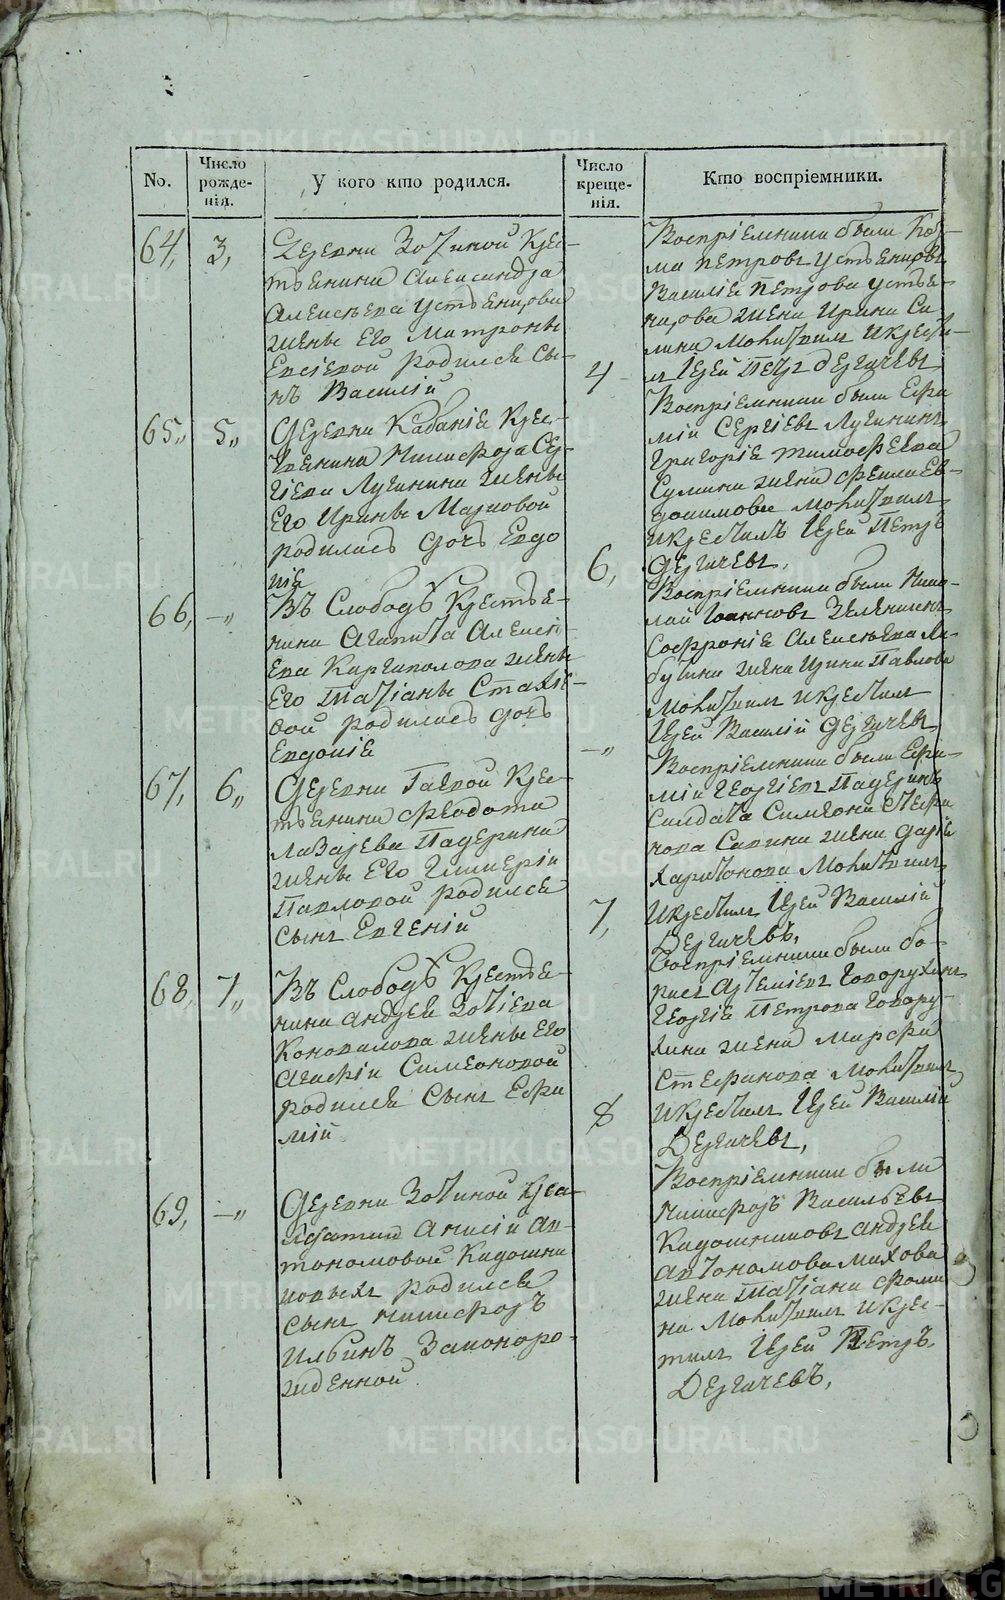 No.
Число рожде-нія.
У кого кто родился.
Число креще-нія.
Кто воспріемники.
64,
3,
Деревни Зотиной Крес-
тьянина Александра
Алексѣева Устьянцова
жены Его Матроны
родился Сы-
нъ Василій
4
Воспріемники были Коз-
ма Петровъ Устьянцовъ
Василія Петрова Устья-
нцова жена Ирина
Молитвилъ и крести-
л Іерей Петръ Дергачевъ
65,,
5,,
Деревни Кабаніе Крес-
тьянина Никифора Сер-
гіева Лугинина жены
Его Ирины Марковой
родилась дочь Евдо
кія
6,
Воспріемники были Ефи
мій Сергіевъ Лугининъ
Григорія Тимофеева
жена
Молитвилъ
и крестилъ Іерей Петръ
Дергачевъ,
66,
-,,
Въ Слободѣ Крестья-
нина Агапита Алексѣ-
ева Каргаполова жены
Его Татіаны
родилась дочь
Евдокія
-,,
Воспріемники были Нико-
лай Іоанновъ
Софронія Алексѣева Ла-
жена Ирина Павлова
Молитвилъ и крестилъ
Іерей Василій Дергачевъ
67,
6,,
Деревни Гаевой Крес-
тьянина Феодота
Лазарева Падерина
жены Его Гликеріи
Павловой родился
сынъ Евгеній
7,
Воспріемники были Ефи-
мій Георгіевъ Падеринъ
Солдата Симеона
жена Дарія
Харитонова Молитвилъ
и крестилъ Іерей Василій
Дергачевъ,
68,
7,,
Въ Слободѣ Крестья-
нина Андрея Зотіева
Коновалова жены Его
Агафіи Симеоновой
родился Сынъ Ефи
мій
8
Воспріемники были Бо-
рисъ Артеміевъ Говорухинъ
Георгія Петрова Говору-
хина жена Марфа
Стефанова Молитвилъ
и крестилъ Іерей Василій
Дергачевъ,
69,
-,,
Деревни Зотиной
Анисіи Ав-
тономовой Кадошни
ковыхъ родился
сынъ Никифоръ
Ильинъ Законоро-
жденной
Воспріемники были
Никифоръ Васильевъ
Кадошниковъ Андрея
Автономова Махова
жена Татіана Фоми
на Молитвилъ и крес-
тилъ Іерей Петръ
Дергачевъ,
METRIKI.GASO-URAL.RU